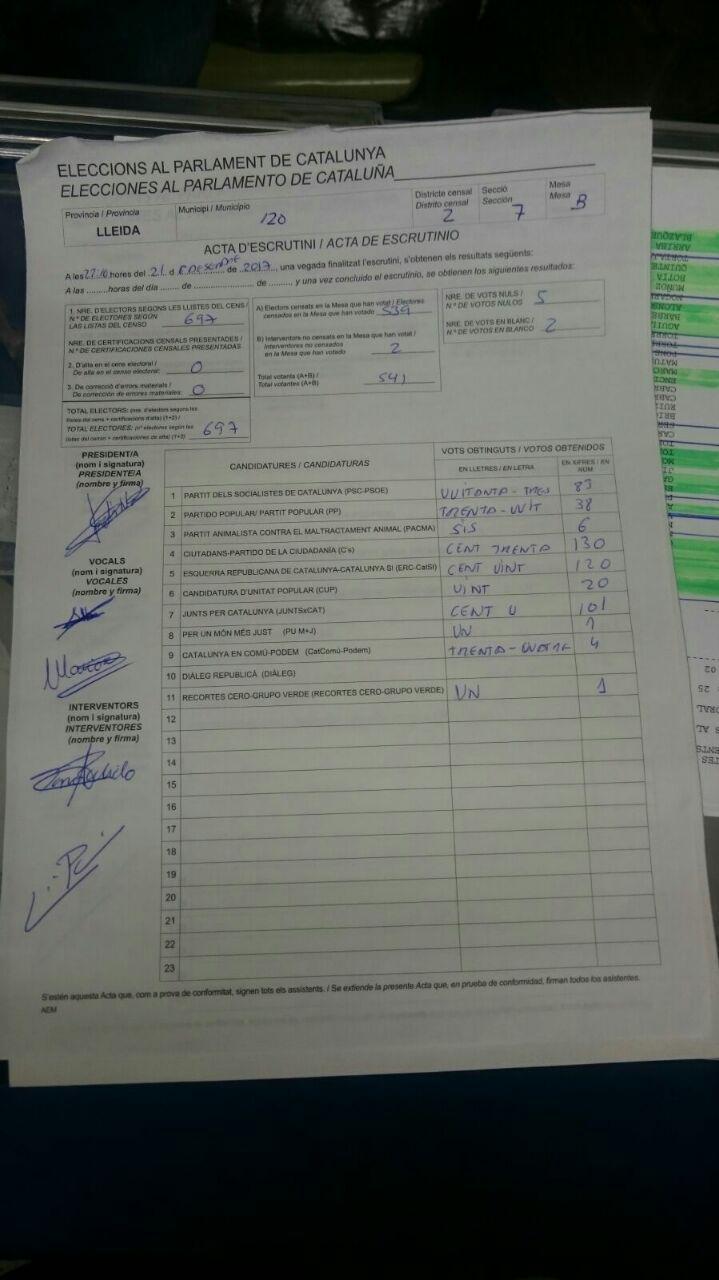 ELECCIONS AL PARLAMENT DE CATALUNYA
ELECCIONES AL PARLAMENTO DE CATALUÑA
Provincia / Provincia LLEIDA Municipi / Municipio 120 Districte censal Distrito censal 2 Secció Sección 7 Mesa Mesa B
ACTA D'ESCRUTINI / ACTA DE ESCRUTINIO
A les 22:10 hores del 21 d de 2017, una vegada finalitzat l'escrutini, s'obtenen els resultats següents:
A las .........horas del día ........ de ..................... de ..........., y una vez concluido el escrutinio, se obtienen los siguientes resultados:
1. NRE. D'ELECTORS SEGONS LES LLISTES DEL CENS /
N.º DE ELECTORES SEGÚN
LAS LISTAS DEL CENSO 697
NRE. DE CERTIFICACIONS CENSALS PRESENTADES /
N.º DE CERTIFICACIONES CENSALES PRESENTADAS
2. D'alta en el cens electoral /
De alta en el censo electoral: 0
3. De correcció d'errors materials /
De corrección de errores materiales: 0
TOTAL ELECTORS: (nre. d'electors segons les
llistes del cens + certificacions d'alta) (1+2) /
TOTAL ELECTORES: (nº electores según las
listas del censo + certificaciones de alta) (1+2) 697
A) Electors censats en la Mesa que han votat / Electores
censados en la Mesa que han votado 539
B) Interventors no censats en la Mesa que han votat /
Interventores no censados
en la Mesa que han votado 2
Total votants (A+B) /
Total votantes (A+B) 541
NRE. DE VOTS NULS /
N.º DE VOTOS NULOS 5
NRE. DE VOTS EN BLANC /
N.º DE VOTOS EN BLANCO 2
PRESIDENT/A
(nom i signatura)
PRESIDENTE/A
(nombre y firma)
VOCALS
(nom i signatura)
VOCALES
(nombre y firma)
INTERVENTORS
(nom i signatura)
INTERVENTORES
(nombre y firma)
CANDIDATURES / CANDIDATURAS VOTS OBTINGUTS / VOTOS OBTENIDOS
EN LLETRES / EN LETRA EN XIFRES / EN NÚM
1 PARTIT DELS SOCIALISTES DE CATALUNYA (PSC-PSOE) VUITANTA-TRES 83
2 PARTIDO POPULAR/ PARTIT POPULAR (PP) TRENTA-VUIT 38
3 PARTIT ANIMALISTA CONTRA EL MALTRACTAMENT ANIMAL (PACMA) SIS 6
4 CIUTADANS-PARTIDO DE LA CIUDADANÍA (C's) CENT TRENTA 130
5 ESQUERRA REPUBLICANA DE CATALUNYA-CATALUNYA SÍ (ERC-CatSí) CENT VINT 120
6 CANDIDATURA D'UNITAT POPULAR (CUP) VINT 20
7 JUNTS PER CATALUNYA (JUNTSxCAT) CENT U 101
8 PER UN MÓN MÉS JUST (PU M+J) UN 1
9 CATALUNYA EN COMÚ-PODEM (CatComú-Podem) TRENTA-QUATRE 4
10 DIÀLEG REPUBLICÀ (DIÀLEG)
11 RECORTES CERO-GRUPO VERDE (RECORTES CERO-GRUPO VERDE) UN 1
12
13
14
15
16
17
18
19
20
21
22
23
S'estén aquesta Acta que, com a prova de conformitat, signen tots els assistents. / Se extiende la presente Acta que, en prueba de conformidad, firman todos los asistentes.
AEM